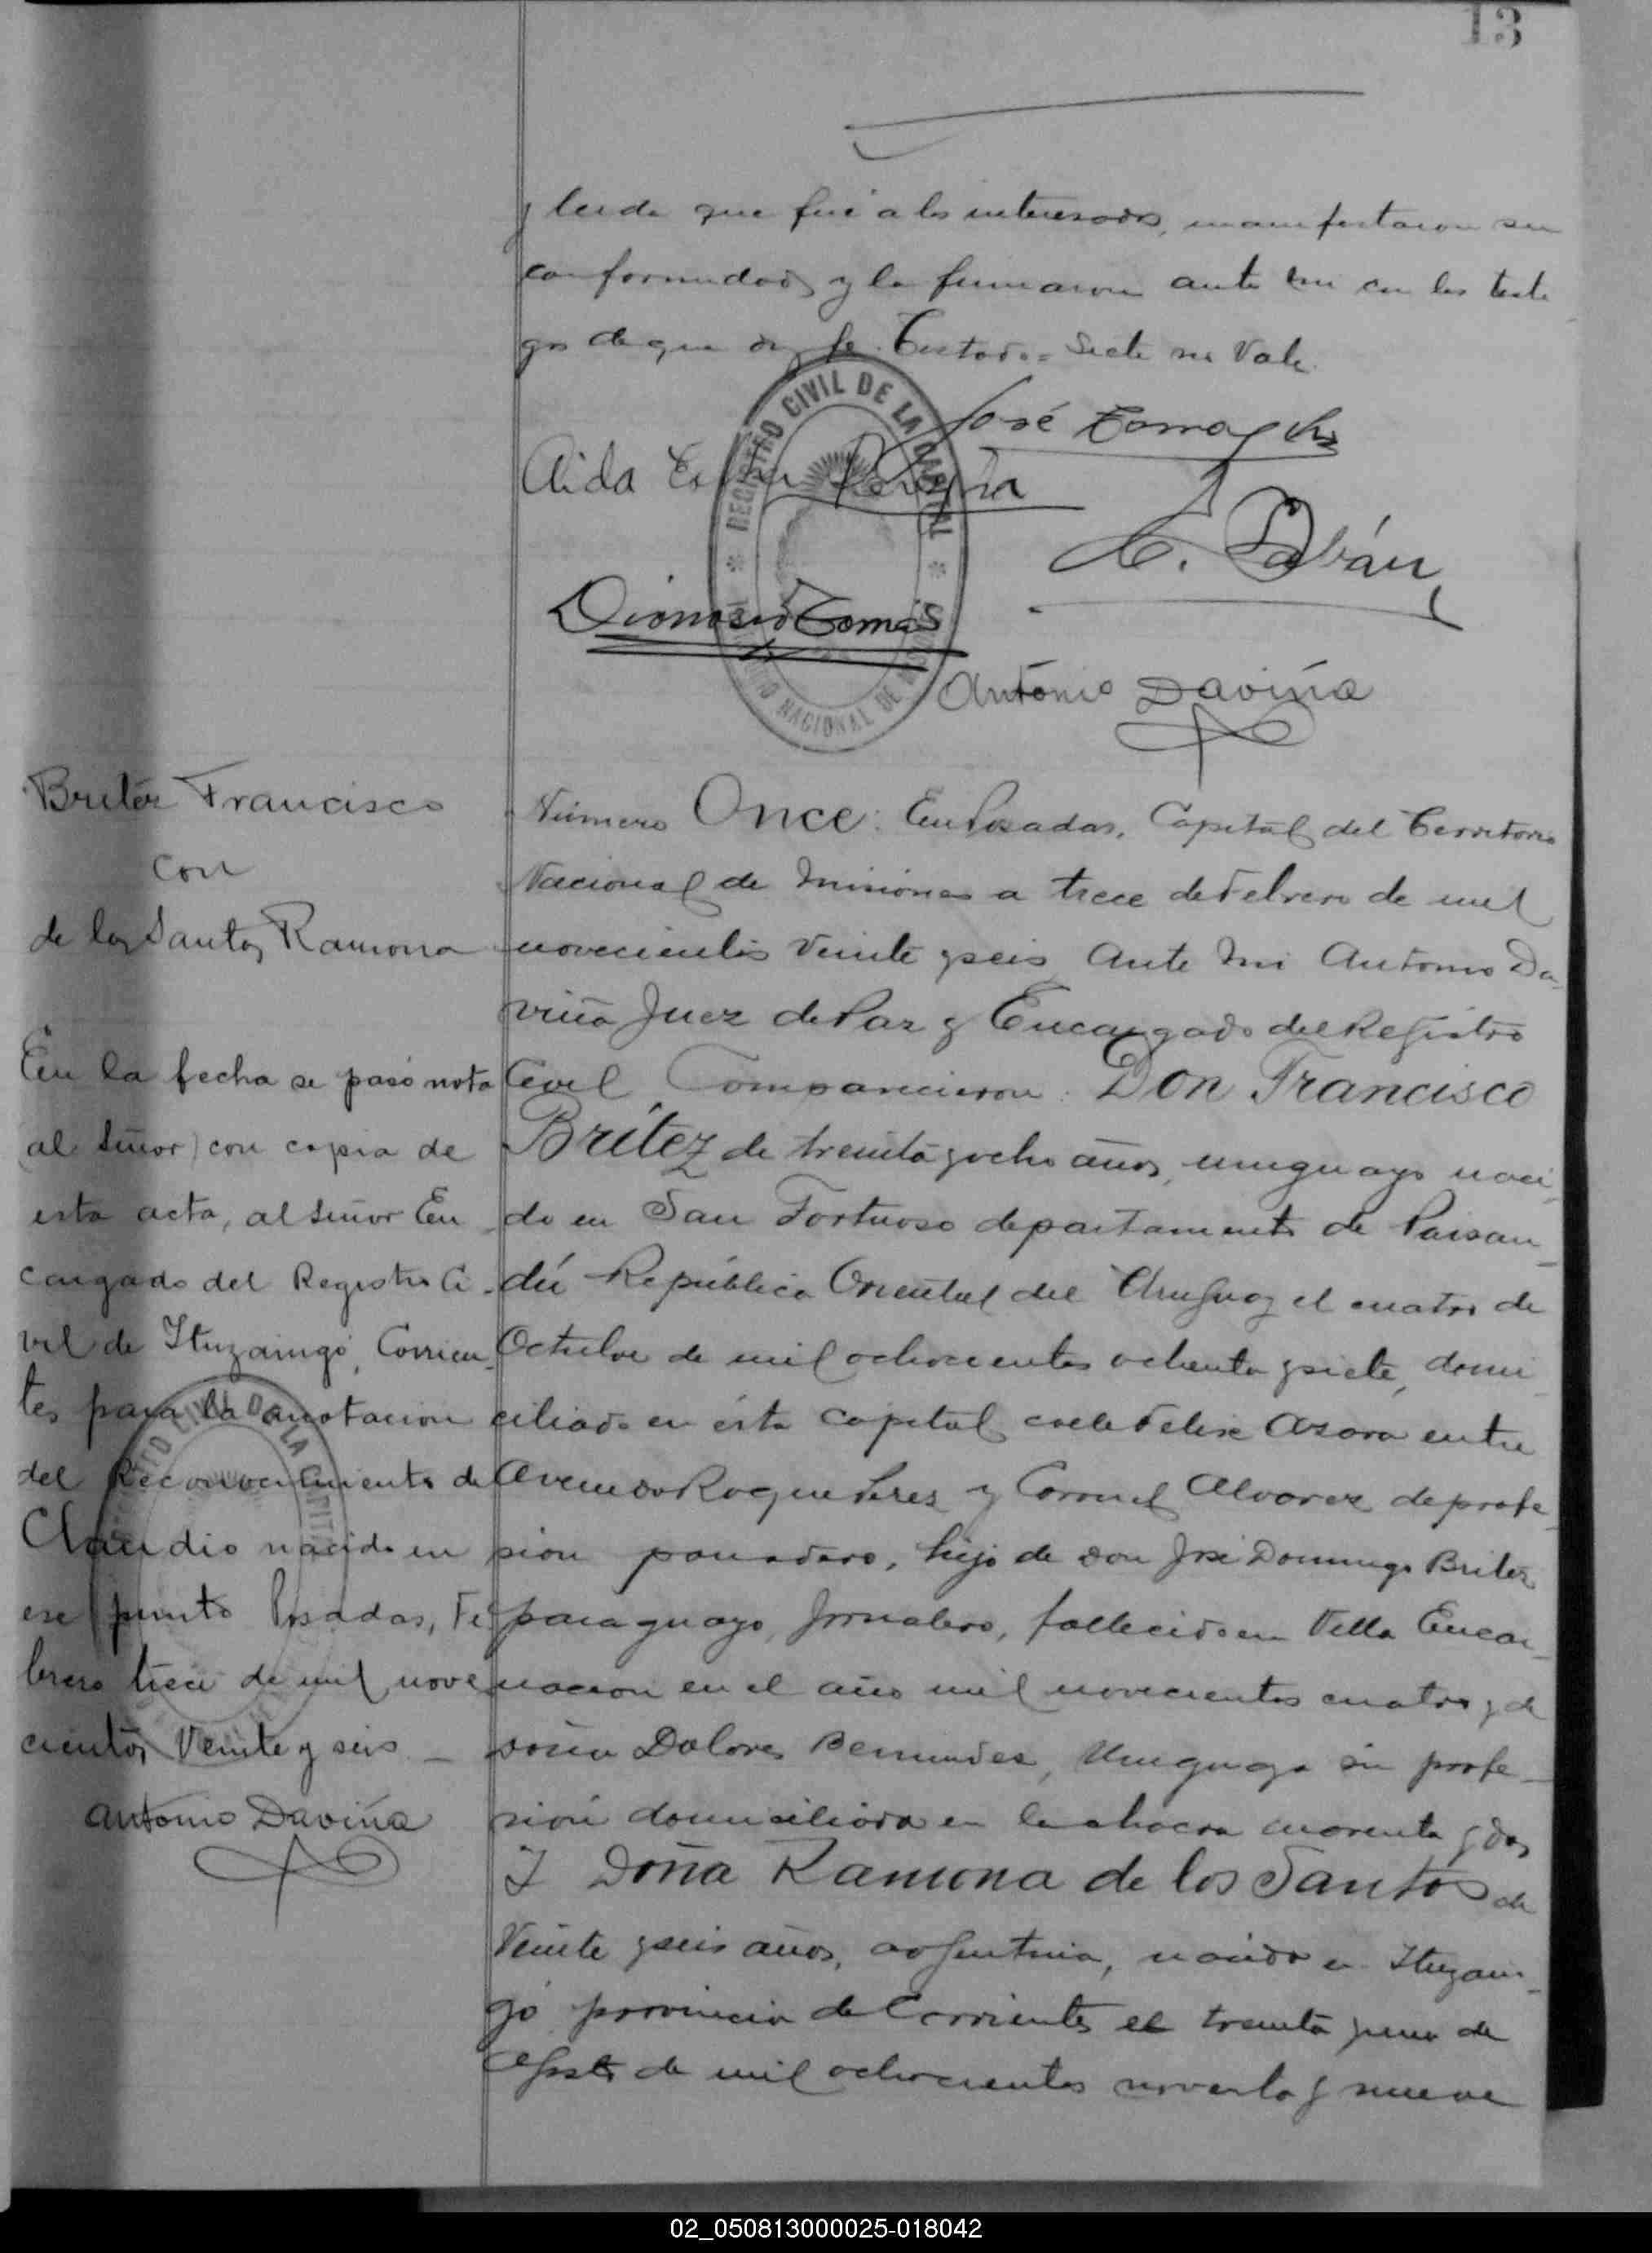 13
y leida que fué a los interesados, manifestaron su
conformidad y la firmaron ante mi con los testi
gos de que doy fe. Testado = Siete no Vale.
REGISTRO CIVIL DE LA CAPITAL
NACIONAL DE
José
Aida
Dionosio Tomás
Antonio Daviña
Britez Francisco
con
de los Santos Ramona
En la fecha se pasó nota
(al señor) con copia de
esta acta, al señor En
cargado del Registro Ci-
vil de Ituzaingó, Corrien-
tes para la anotacion
del Reconocimiento de
Claudio nacido en
ese punto Posadas, Fe
brero trece de mil nove
cientos Veinte y seis. —
Antonio Daviña
Número Once: En Posadas, Capital del Territorio
Nacional de Misiones a trece de Febrero de mil
novecientos Veinte y seis, Ante Mi Antonio Da-
viña Juez de Paz y Encargado del Registro
Civil, Comparecieron: Don Francisco
Brítez de treinta y ocho años, uruguayo naci
do en San Fortuoso departamento de Paisan-
dú República Oriental del Uruguay el cuatro de
Octubre de mil ochocientos ochenta y siete, domi
ciliado en ésta capital calle Felix Azara entre
Avenida Roque Perez y Coronel Alvarez de profe-
sión panadero, hijo de don José Domingo Britez,
paraguayo, jornalero, fallecido en Villa Encar-
nacion en el año mil novecientos cuatro y de
doña Dolores Bermudez, Uruguaya sin profe-
sión domiciliada en la chacra cuarenta y dos
Y Doña Ramona de los Santos de
Veinte y seis años, argentina, nacida en Ituzain-
gó provincia de Corrientes el treinta y uno de
Agosto de mil ochocientos noventa y nueve
02_050813000025-018042